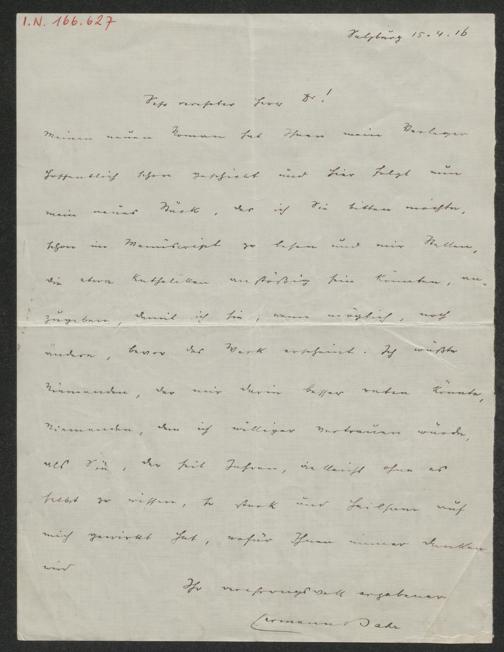 I.N. 166.627
Salzburg 15.4.16
Sehr verehrter Herr Dr!
Meinen neuen Roman hat Ihnen mein Verleger
hoffentlich schon geschickt und hier folgt nun
mein neues Stück, das ich Sie bitten möchte,
schon im Manuscript zu lesen und mir Stellen,
die etwa Katholiken anstößig sein könnten, an-
zugeben, damit ich sie, wenn möglich, noch
ändere, bevor das Werk erscheint. Ich wüßte
Niemanden, der mir darin besser raten könnte,
Niemanden, dem ich williger vertrauen würde,
als Sie, der seit Jahren, vielleicht ohne es
selbst zu wissen, so stark und heilsam auf
mich gewirkt hat, wofür Ihnen immer danken
wird
Ihr verehrungsvoll ergebener
Hermann Bahr